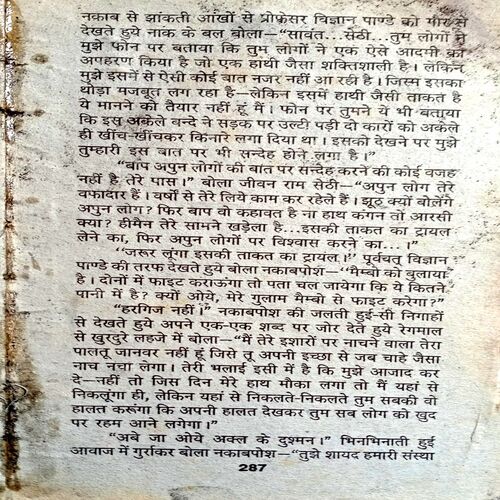 नकाब से झांकती आंखों से प्रोफेसर विज्ञान पाण्डे को गौर से
देखते हुये नाक के बल बोला—‘‘सावंत...सेठी...तुम लोगों ने
मुझे फोन पर बताया कि तुम लोगों ने एक ऐसे आदमी का
अपहरण किया है जो एक हाथी जैसा शक्तिशाली है। लेकिन
मुझे इसमें से ऐसी कोई बात नजर नहीं आ रही है। जिस्म इसका
थोड़ा मजबूत लग रहा है—लेकिन इसमें हाथी जैसी ताकत है
ये मानने को तैयार नहीं हूं मैं। फोन पर तुमने ये भी बताया
कि इस अकेले बन्दे ने सड़क पर उल्टी पड़ी दो कारों को अकेले
ही खींच-खींचकर किनारे लगा दिया था। इसको देखने पर मुझे
तुम्हारी इस बात पर भी सन्देह होने लगा है।’’
‘‘बाप अपुन लोगों की बात पर सन्देह करने की कोई वजह
नहीं है तेरे पास।’’ बोला जीवन राम सेठी—‘‘अपुन लोग तेरे
वफादार हैं। वर्षों से तेरे लिये काम कर रहेले हैं। झूठ क्यों बोलेंगे
अपुन लोग? फिर बाप वो कहावत है ना हाथ कंगन तो आरसी
क्या? हीमैन तेरे सामने खड़ेला है...इसकी ताकत का ट्रायल
लेने का, फिर अपुन लोगों पर विश्वास करने का...।’’
‘‘जरूर लूंगा इसकी ताकत का ट्रायल।’’ पूर्वचत् विज्ञान
पाण्डे की तरफ देखते हुये बोला नकाबपोश—‘‘मैम्बो को बुलाया
है। दोनों में फाइट कराऊंगा तो पता चल जायेगा कि ये कितने
पानी में है? क्यों ओये, मेरे गुलाम मैम्बो से फाइट करेगा?’’
‘‘हरगिज नहीं।’’ नकाबपोश की जलती हुई-सी निगाहों
से देखते हुये अपने एक-एक शब्द पर जोर देते हुये रेगमाल
से खुरदुरे लहजे में बोला—‘‘मैं तेरे इशारों पर नाचने वाला तेरा
पालतू जानवर नहीं हूं जिसे तू अपनी इच्छा से जब चाहे जैसा
नाच नचा लेगा। तेरी भलाई इसी में है कि मुझे आजाद कर
दे—नहीं तो जिस दिन मेरे हाथ मौका लगा तो मैं यहां से
निकलूंगा ही, लेकिन यहां से निकलते-निकलते तुम सबकी वो
हालत करूंगा कि अपनी हालत देखकर तुम सब लोग को खुद
पर रहम आने लगेगा।’’
‘‘अबे जा ओये अक्ल के दुश्मन।’’ भिनभिनाती हुई
आवाज में गुर्राकर बोला नकाबपोश—‘‘तुझे शायद हमारी संस्था
287